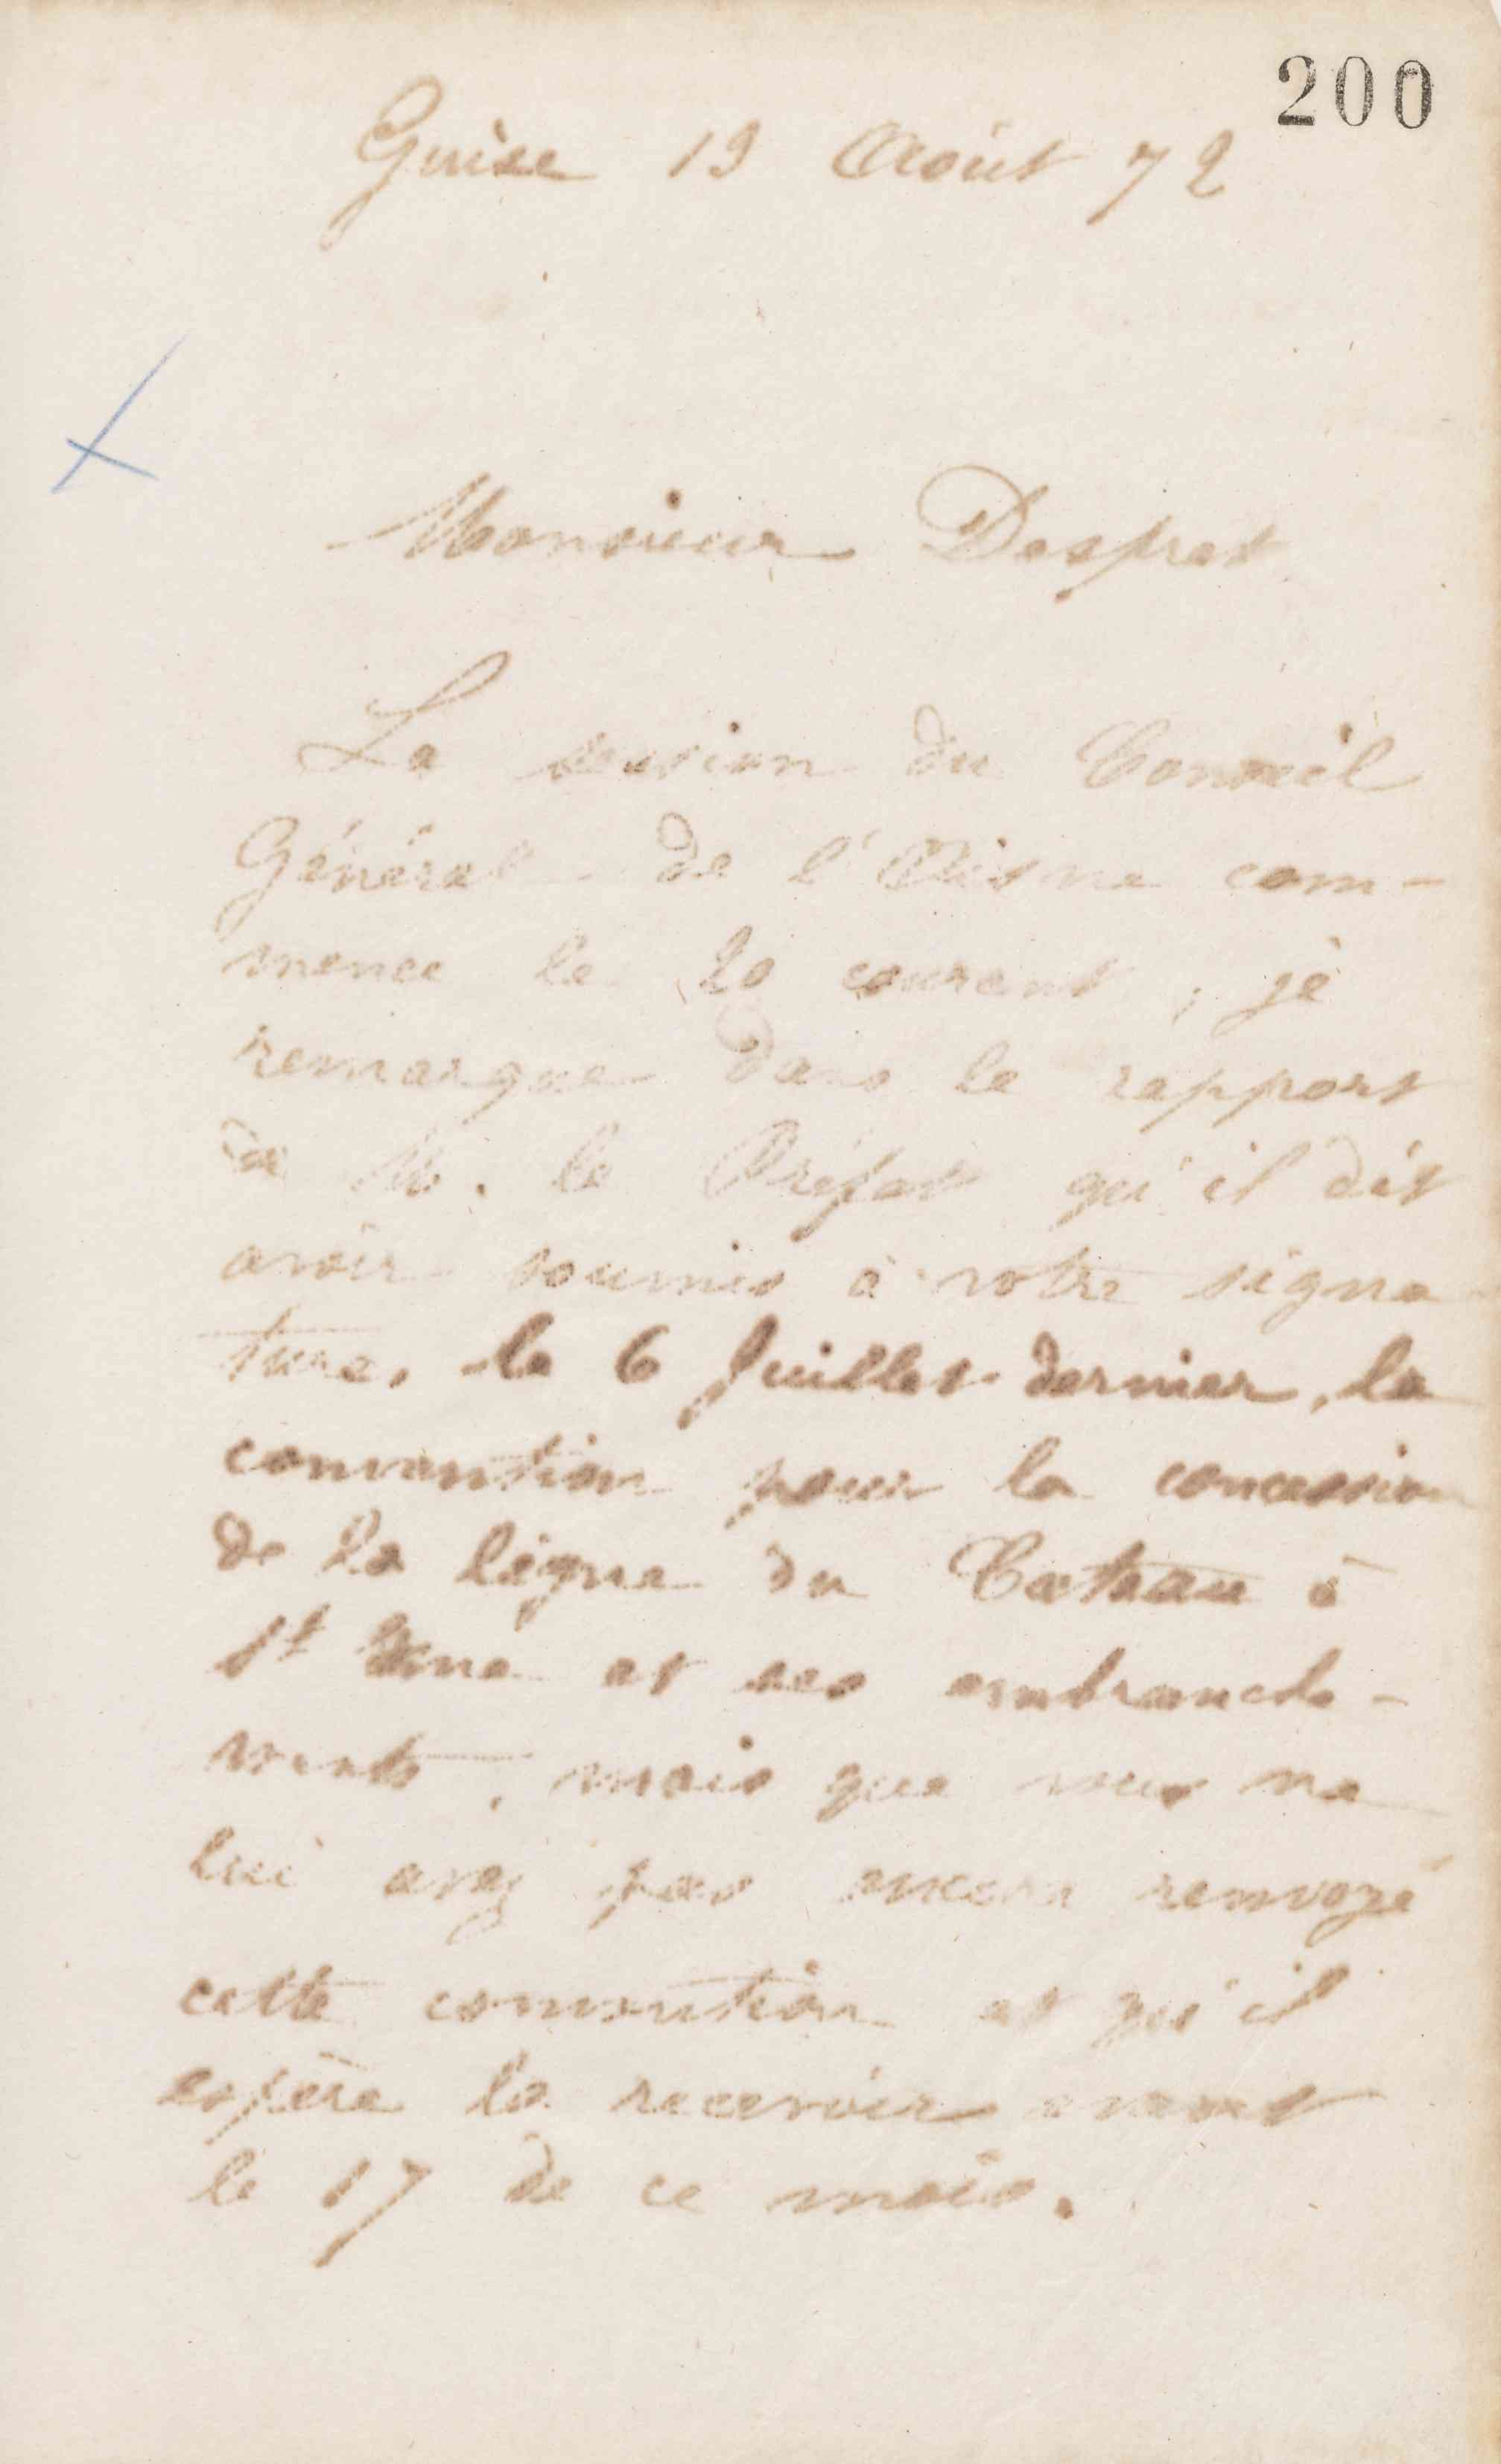 200
Guise 13 Août 72
Monsieur Despret
La session du Conseil
Général de l'Aisne com-
mence le 20 courant, je
remarque dans le rapport
de M. le Préfet qu'il dit
avoir soumis à votre signa
ture, le 6 Juillet dernier, la
convention pour la concession
de la ligne du Cateau à
St Erme et ses embranche-
ments, mais que vous ne
lui avez pas encore renvoyé
cette convention et qu'il
espère la recevoir avant
le 17 de ce mois.